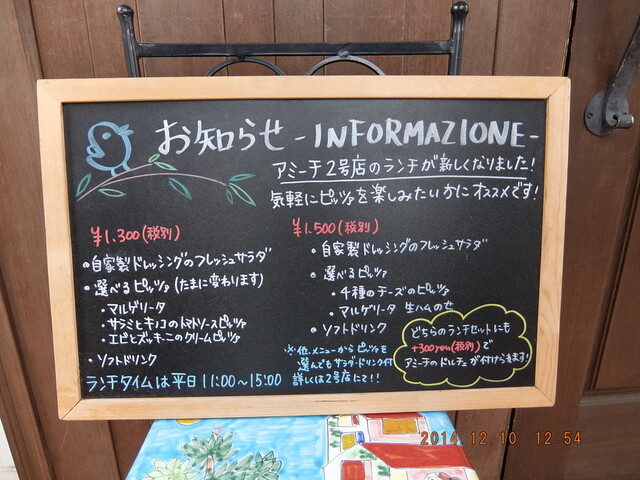 お知らせ -INFORMAZIONE-
アミーチ2号店のランチが新しくなりました!
気軽にピッツァを楽しみたい方にオススメです!
¥1,300(税別)
・自家製ドレッシングのフレッシュサラダ
・選べるピッツァ(たまに変わります)
・マルゲリータ
・サラミとキノコのトマトソースピッツァ
・エビとズッキーニのクリームピッツァ
・ソフトドリンク
ランチタイムは平日11:00~15:00
¥1,500(税別)
・自家製ドレッシングのフレッシュサラダ
・選べるピッツァ
・4種のチーズのピッツァ
・マルゲリータ 生ハムのせ
・ソフトドリンク
※他、メニューからピッツァを
選んでもサラダ・ドリンク付
詳しくは2号店にて!!
どちらのランチセットにも
+300yen(税別)で
アミーチのドルチェが付けられます!
2014.12.10 12:54